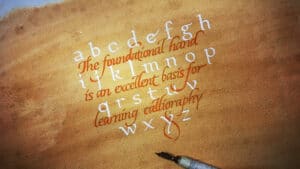 a b c d e f g h
The foundational hand
i j k l m n o p
is an excellent basis for
q r s t u v
learning calligraphy
w x y z